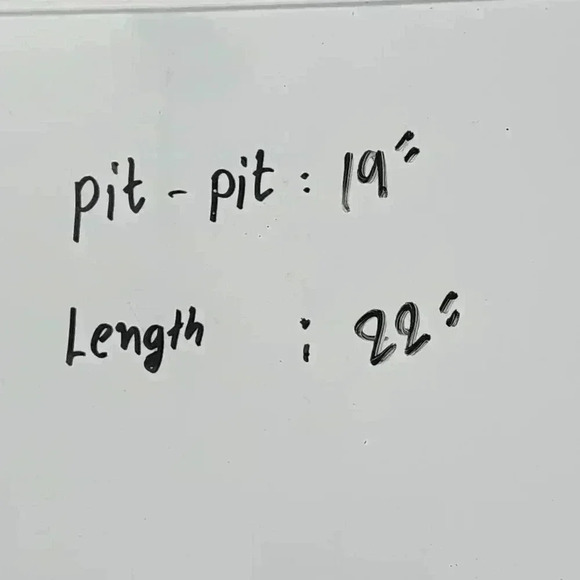 pit - pit : 19"
Length : 22"